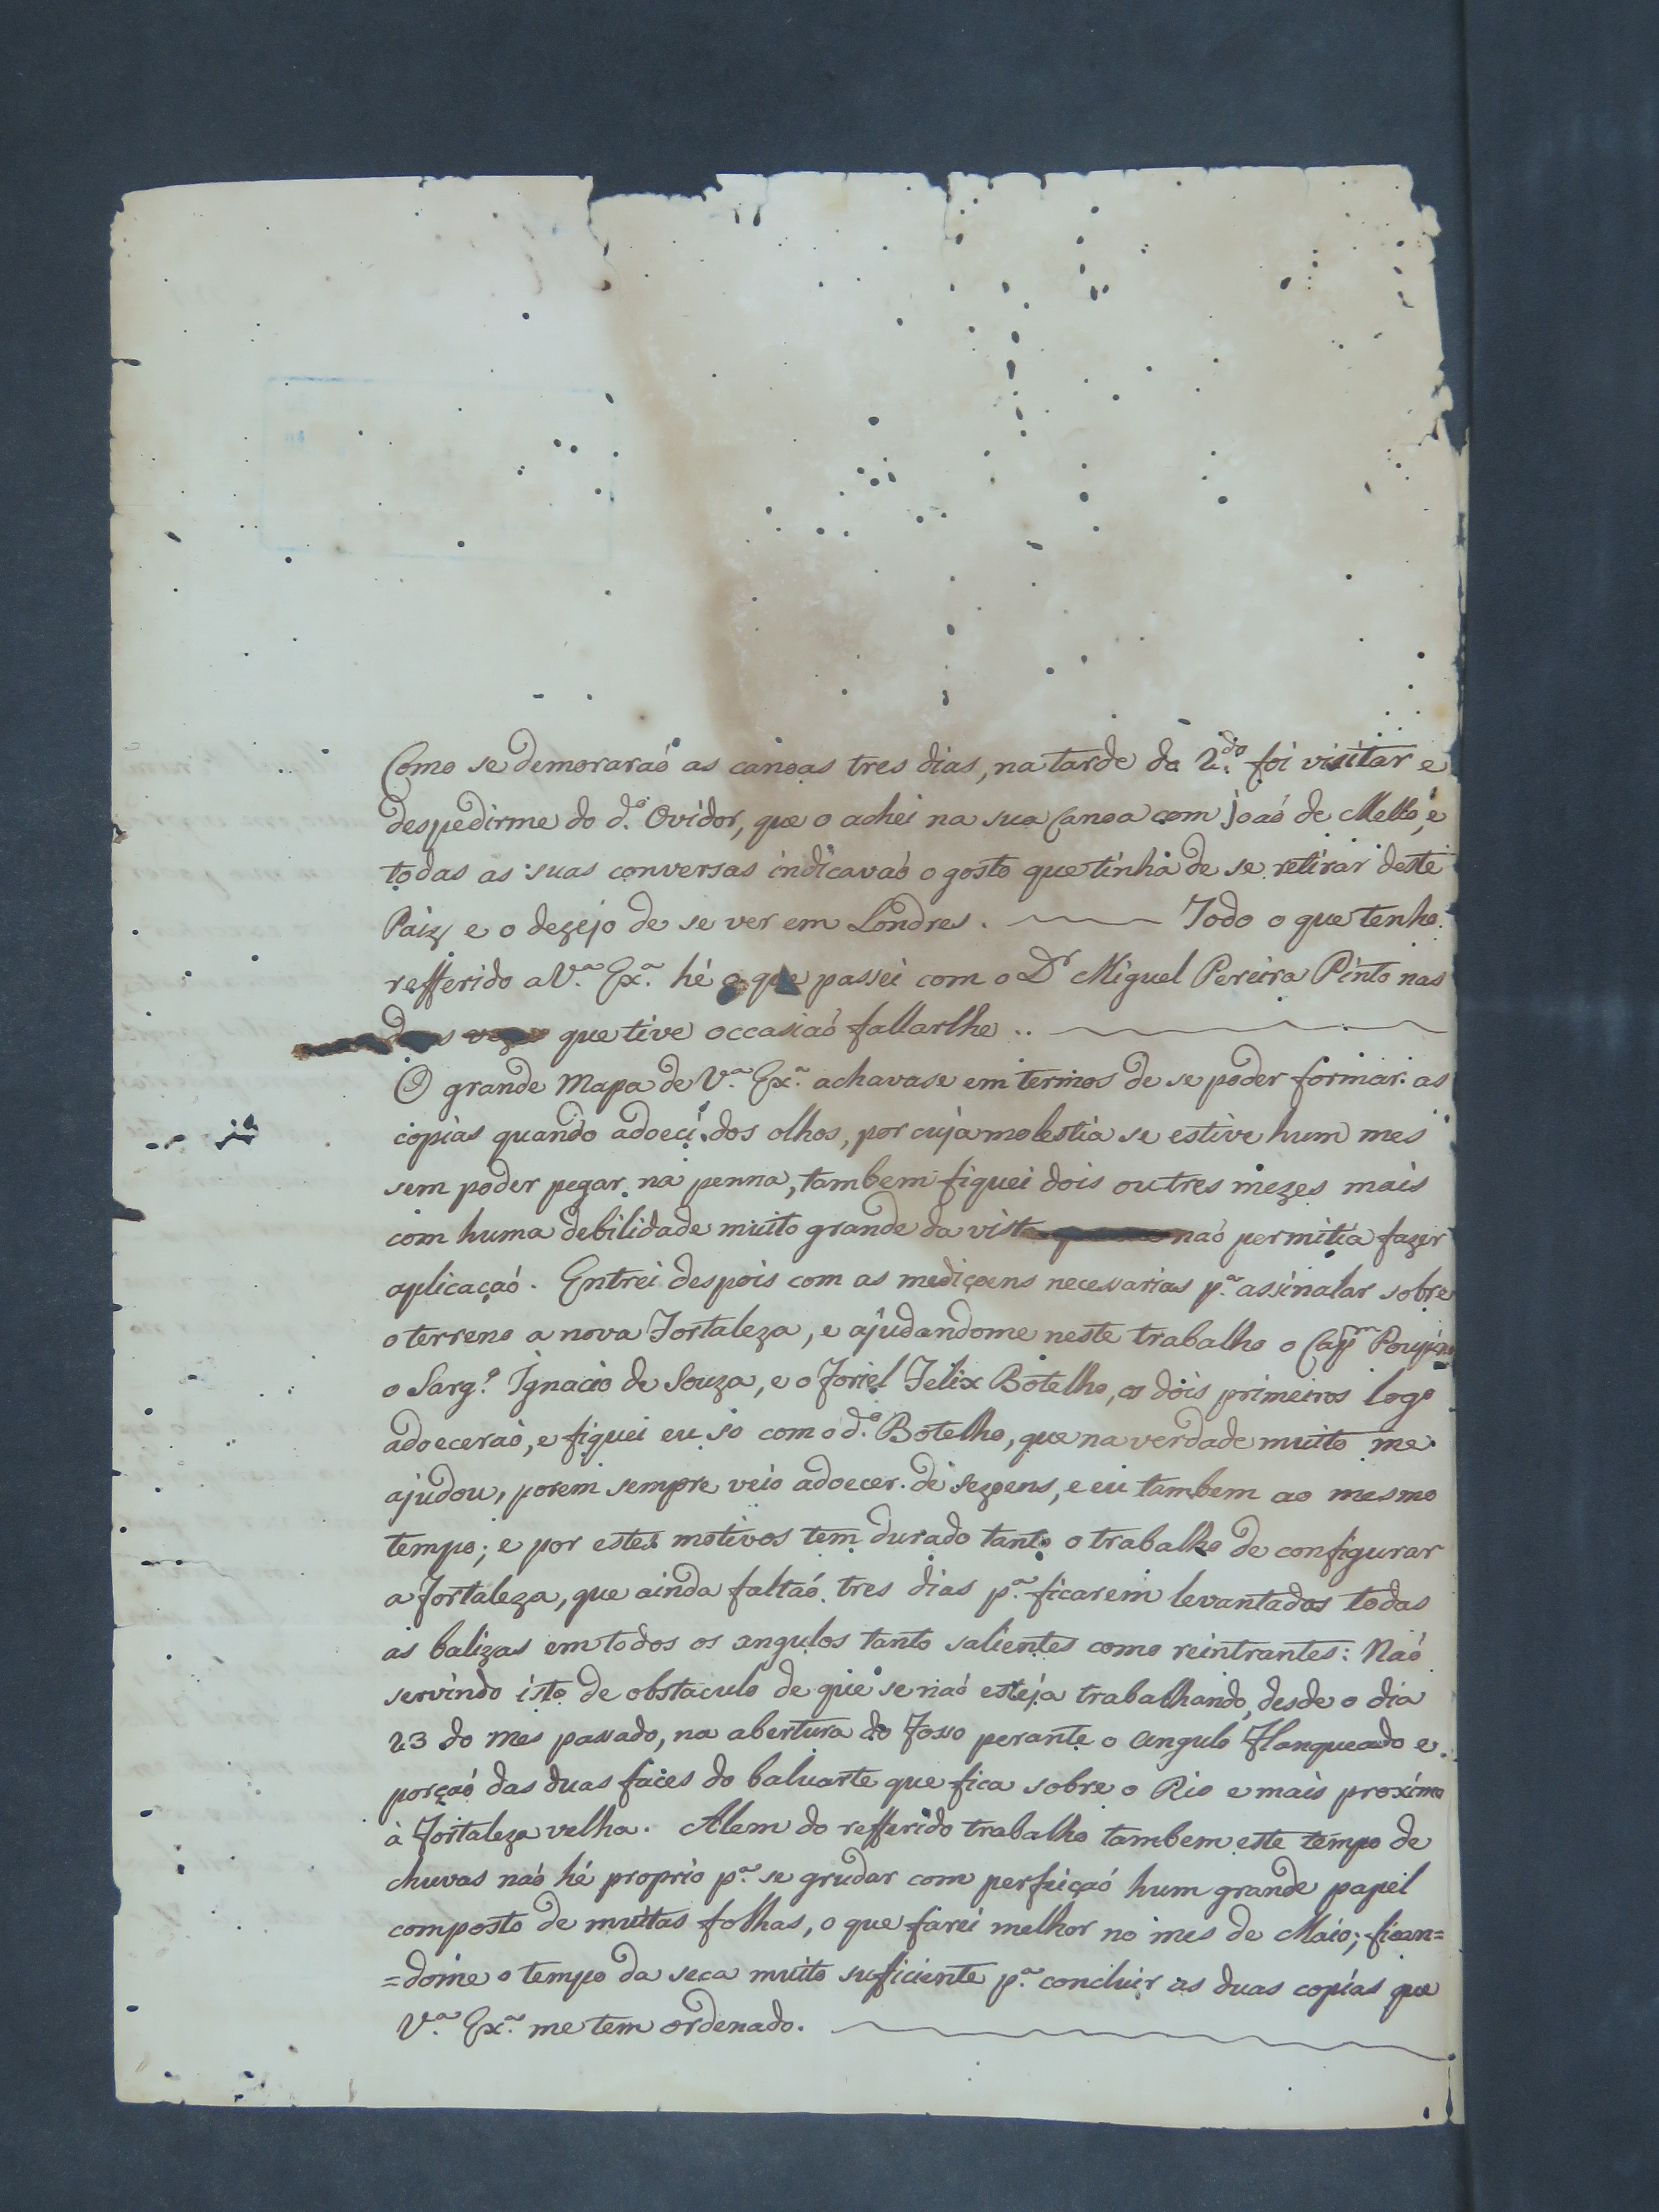 Como se demoraraó as canoas tres dias, na tarde da 2.do foi visitar e
despedirme do d.o Ovidor, que o achei na sua Canoa com Joaó de Mello, e
todas as suas conversas indicavaó o gosto que tinha de se retirar deste
Paiz e o dezejo de se ver em Londres. Todo o que tenho
refferido a V.a Ex.a hé o que passei com o Dr Miguel Pereira Pinto nas
que tive occasiaó fallarlhe..
O grande Mapa de V.a Ex.a achavase em termos de se poder formar as
copias quando adoeci dos olhos, por cuja molestia se estive hum mes
sem poder pegar na penna, tambem fiquei dois ou tres mezes mais
com huma debilidade muito grande da vista naó permitia fazer
aplicaçaó. Entrei despois com as mediçoens necessarias p.a assinalar sobre
o terreno a nova Fortaleza, e ajudandome neste trabalho o Capm
o Sarg.o Ignacio de Souza, e o Foriel Felix Botelho, os dois primeiros logo
adoeceraó, e fiquei eu so com o d.o Botelho, que na verdade muito me
ajudou, porem sempre veio adoecer de sezoens, e eu tambem ao mesmo
tempo; e por estes motivos tem durado tanto o trabalho de configurar
a Fortaleza, que ainda faltaó tres dias p.a ficarem levantadas todas
as balizas em todos os angulos tanto salientes como reintrantes: Naó
servindo isto de obstaculo de que se naó esteja trabalhando, desde o dia
23 do mes passado, na abertura do Fosso perante o angulo Flanqueado e
porçaó das duas faces do baluarte que fica sobre o Rio e mais proximo
à Fortaleza velha. Alem do refferido trabalho tambem este tempo de
chuvas naó hé proprio p.a se grudar com perfeiçaó hum grande papel
composto de muitas folhas, o que farei melhor no mes de Maio; fican=
=dome o tempo da seca muito suficiente p.a concluir as duas copias que
V.a Ex.a me tem ordenado.